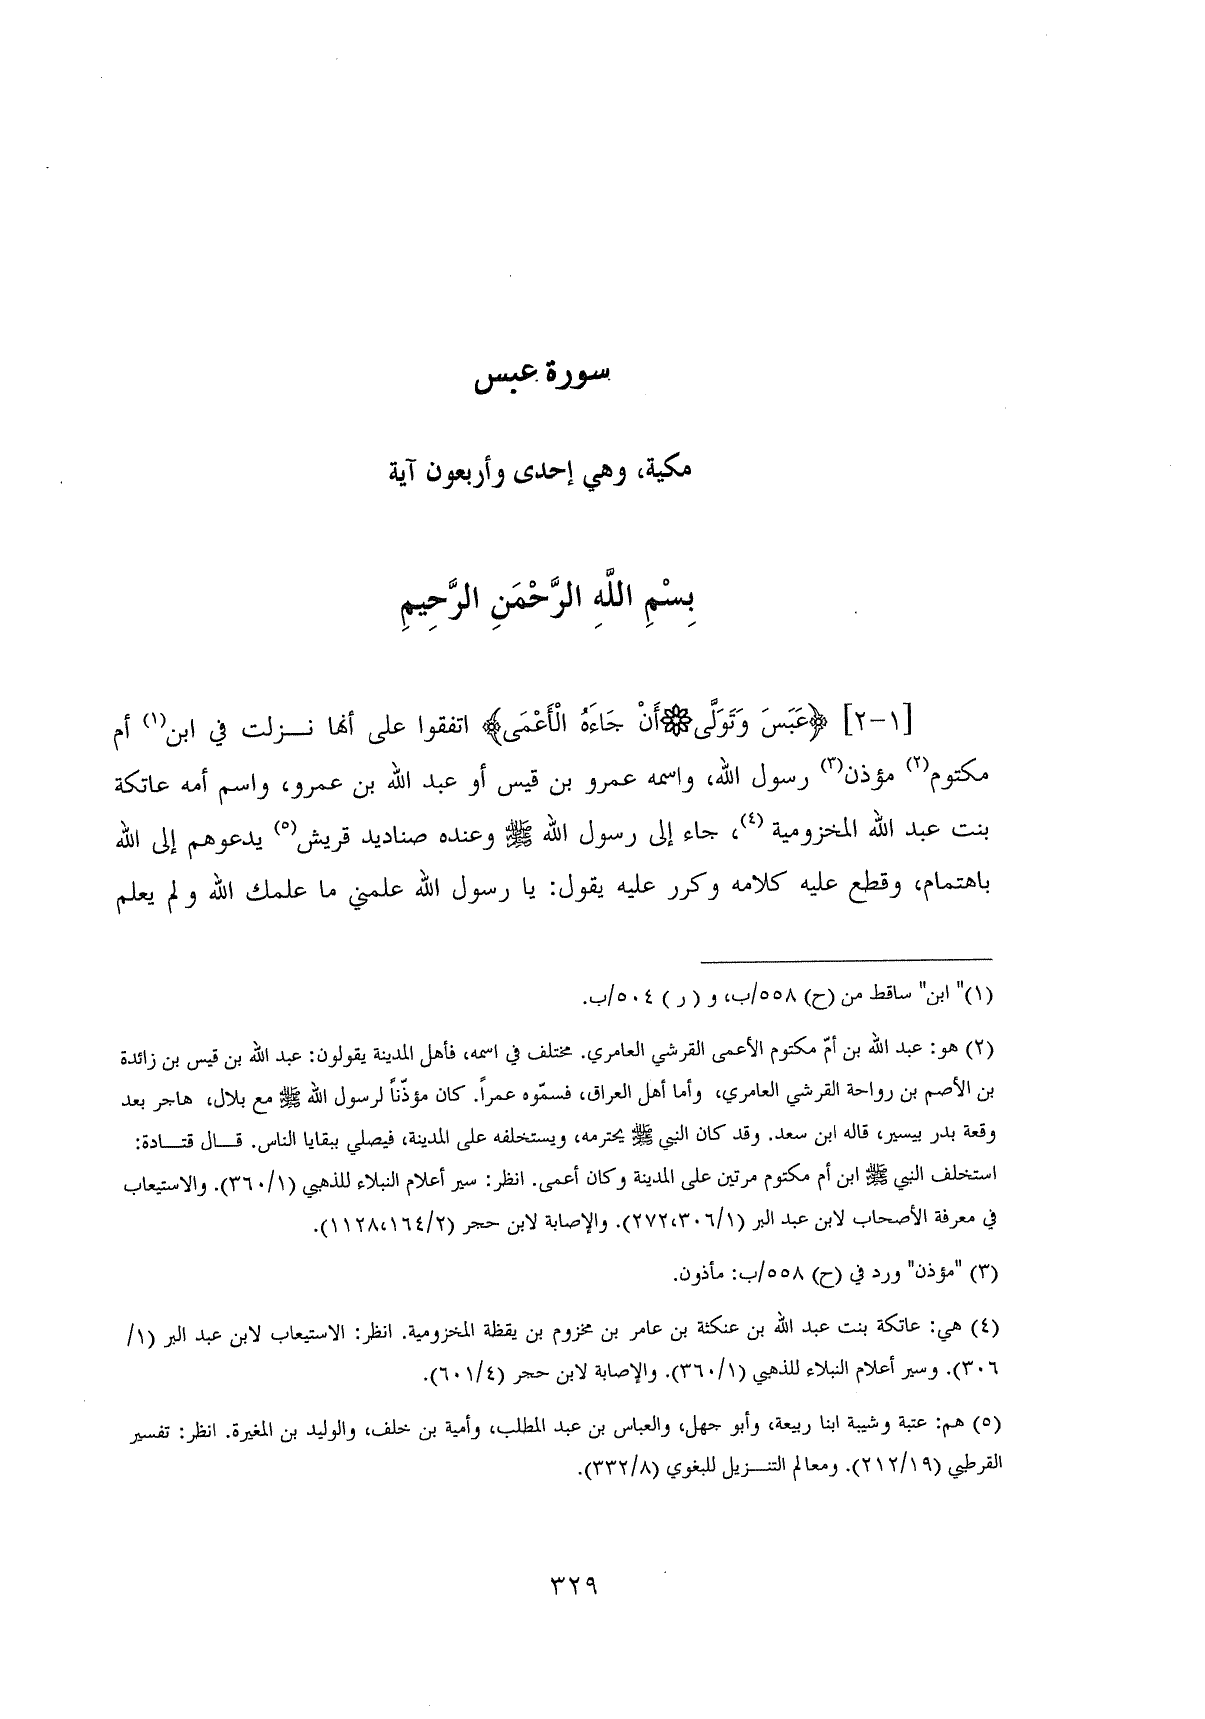 سورة عبس
مكية، وهي إحدى وأربعون آية
بِسْمِ اللَّهِ الرَّحْمَنِ الرَّحِيمِ
[١-٢] ﴿عَبَسَ وَتَوَلَّى۞أَنْ جَاءَهُ الْأَعْمَى﴾ اتفقوا على أنها نـــزلت في ابن(١) أم
مكتوم(٢) مؤذن(٣) رسول الله، واسمه عمرو بن قيس أو عبد الله بن عمرو، واسم أمه عاتكة
بنت عبد الله المخزومية (٤)، جاء إلى رسول الله ﷺ وعنده صناديد قريش(٥) يدعوهم إلى الله
باهتمام، وقطع عليه كلامه وكرر عليه يقول: يا رسول الله علمني ما علمك الله ولم يعلم
(١)" ابن" ساقط من (ح) ٥٥٨/ب، و ( ر ) ٥٠٤/ب.
(٢) هو: عبد الله بن أمّ مكتوم الأعمى القرشي العامري. مختلف في اسمه، فأهل المدينة يقولون: عبد الله بن قيس بن زائدة
بن الأصم بن رواحة القرشي العامري، وأما أهل العراق، فسمّوه عمراً. كان مؤذّناً لرسول الله ﷺ مع بلال، هاجر بعد
وقعة بدر بيسير، قاله ابن سعد. وقد كان النبي ﷺ يحترمه، ويستخلفه على المدينة، فيصلي ببقايا الناس. قـــال قتـــادة:
استخلف النبي ﷺ ابن أم مكتوم مرتين على المدينة وكان أعمى. انظر: سير أعلام النبلاء للذهبي (٣٦٠/١). والاستيعاب
في معرفة الأصحاب لابن عبد البر (٢٧٢،٣٠٦/١). والإصابة لابن حجر (١١٢٨،١٦٤/٢).
(٣) "مؤذن" ورد في (ح) ٥٥٨/ب: مأذون.
(٤) هي: عاتكة بنت عبد الله بن عنكثة بن عامر بن مخزوم بن يقظة المخزومية. انظر: الاستيعاب لابن عبد البر (١/
٣٠٦). وسير أعلام النبلاء للذهبي (٣٦٠/١). والإصابة لابن حجر (٦٠١/٤).
(٥) هم: عتبة وشيبة ابنا ربيعة، وأبو جهل، والعباس بن عبد المطلب، وأمية بن خلف، والوليد بن المغيرة. انظر: تفسير
القرطبي (٢١٢/١٩). ومعالم التنـــزيل للبغوي (٣٣٢/٨).
٣٢٩